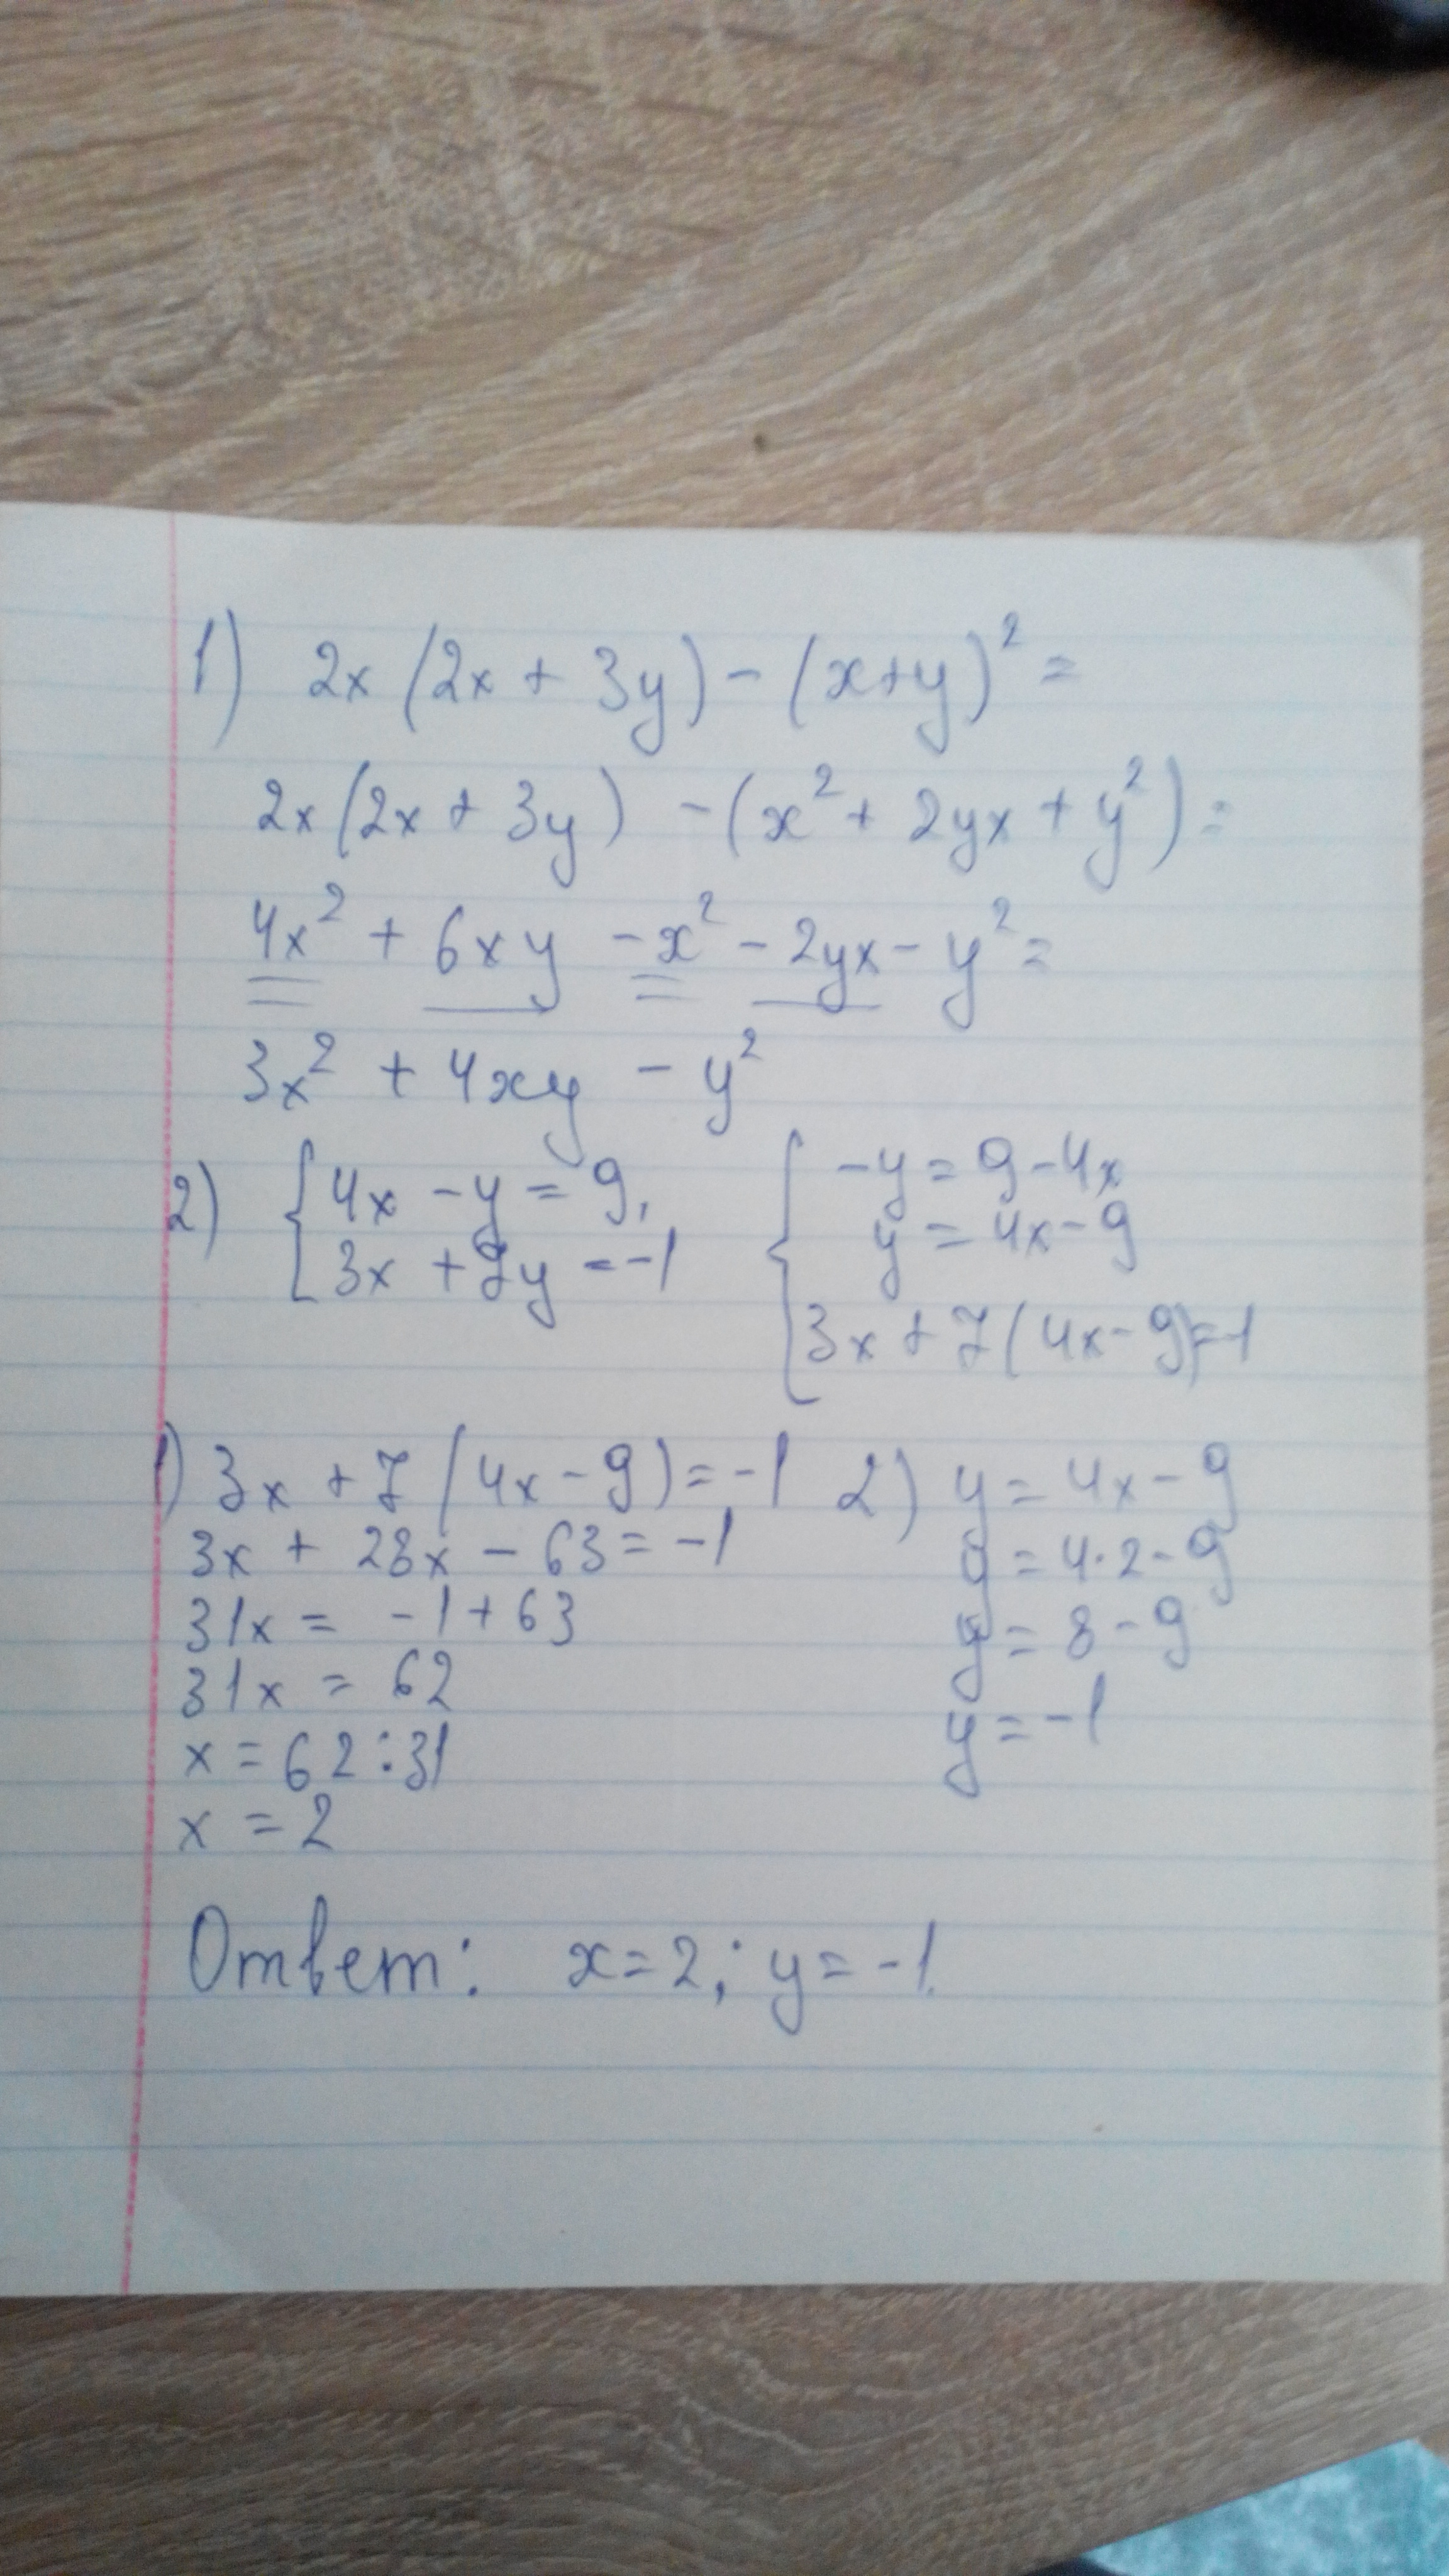 1) 2x (2x + 3y) - (x+y)² =
2x (2x + 3y) - (x² + 2yx + y²) =
4x² + 6xy - x² - 2yx - y² =
3x² + 4xy - y²
2) { 4x - y = 9,
3x + 7y = -1
{ -y = 9 - 4x
y = 4x - 9
3x + 7 (4x - 9) = -1
1) 3x + 7 (4x - 9) = -1
3x + 28x - 63 = -1
31x = -1 + 63
31x = 62
x = 62 : 31
x = 2
2) y = 4x - 9
y = 4·2 - 9
y = 8 - 9
y = -1
Ответ: x = 2; y = -1.